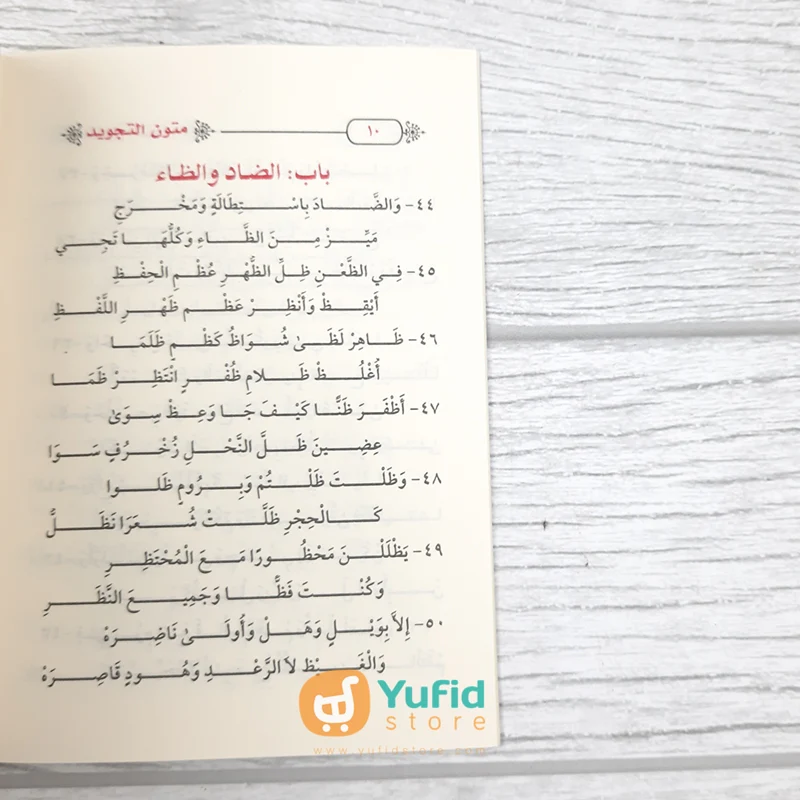 متون التجويد ١٠
باب: الضاد والظاء
٤٤- وَالضَّادَ بِاسْتِطَالَةٍ وَمَخْرَجِ
مَيِّزْ مِنَ الظَّاءِ وَكُلُّهَا تَجِي
٤٥- فِي الظَّعْنِ ظِلِّ الظُّهْرِ عُظْمِ الْحِفْظِ
أَيْقِظْ وَأَنْظِرْ عَظْمِ ظَهْرِ اللَّفْظِ
٤٦- ظَاهِرْ لَظَىٰ شُوَاظُ كَظْمٍ ظَلَمَا
أُغْلُظْ ظَلَامِ ظُفْرٍ انْتَظِرْ ظَمَا
٤٧- أَظْفَرَ ظَنًّا كَيْفَ جَا وَعِظْ سِوَىٰ
عِضِينَ ظَلَّ النَّحْلِ زُخْرُفٍ سَوَا
٤٨- وَظَلْتَ ظَلْتُمْ وَبِرُومٍ ظَلُوا
كَالْحِجْرِ ظَلَّتْ شُعَرَا نَظَلُّ
٤٩- يَظْلَلْنَ مَحْظُورًا مَعَ الْمُحْتَظِرِ
وَكُنْتَ فَظًّا وَجَمِيعَ النَّظَرِ
٥٠- إِلاَّ بِوَيْلٍ وَهَلْ وَأُولَىٰ نَاضِرَهْ
وَالْغَيْظِ لاَ الرَّعْدِ وَهُودٍ قَاصِرَهْ
Yufid
store
www.yufidstore.com